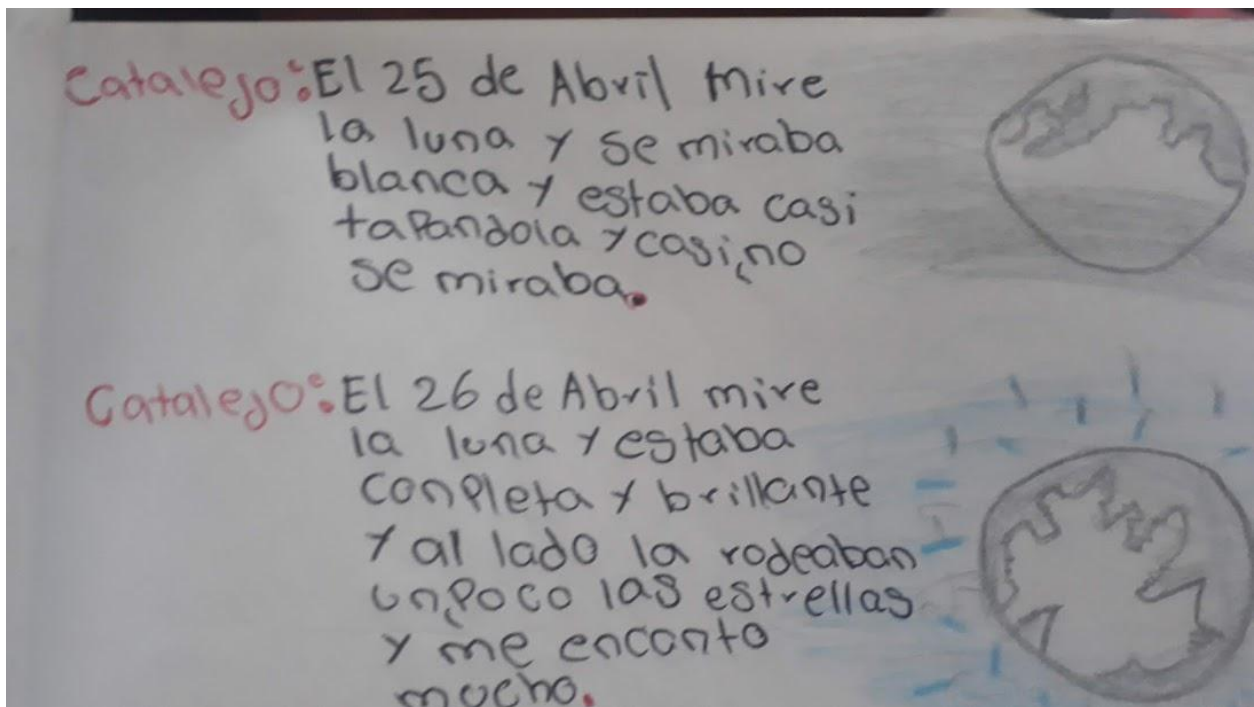 Catalejo: El 25 de Abril mire
la luna y se miraba
blanca y estaba casi
tapandola y casi no
se miraba.
Catalejo: El 26 de Abril mire
la luna y estaba
conpleta y brillante
y al lado la rodeaban
un poco las estrellas
y me encanto
mucho.